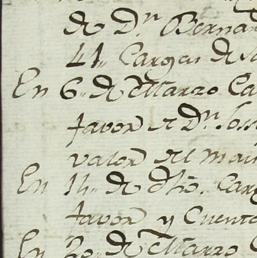 de D.n Berna
41,, Cargas de
En 6,, de Marzo Ca
favor de D.n Jos
valor del mai
En 14,, de dho. Carg
favor y Cuenta
En 20,, de Marzo C